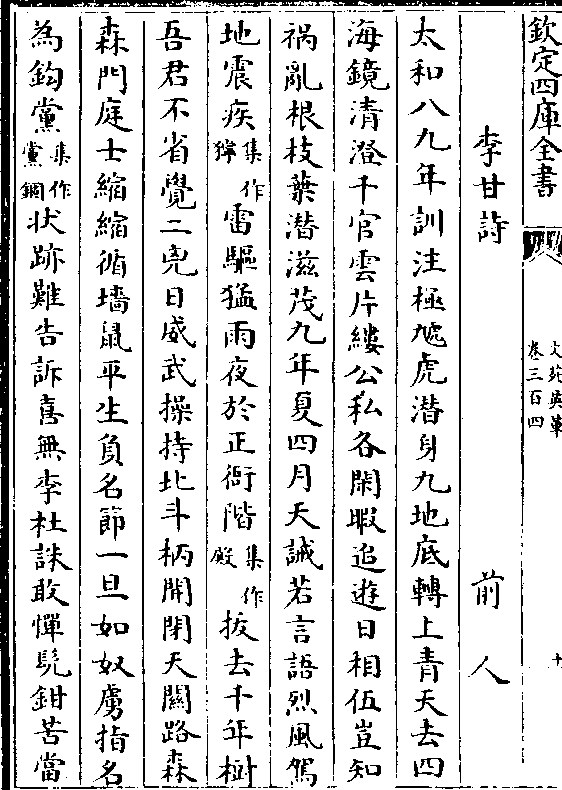 欽定四庫全書
文苑英華
卷三百四
十
李甘詩 前人
太和八九年訓注極虓虎潛身九地底轉上青天去四
海鏡清澄千官雲片縷公私各閑暇追遊日相伍豈知
禍亂根枝葉潜滋茂九年夏四月天誡若言語烈風駕
地震疾集作獰雷驅猛雨夜於正衙階集作殿拔去千年樹
吾君不省覺二兇日威武操持北斗柄開閉天關路森
森門庭士縮縮循墻鼠平生負名節一旦如奴虜指名
為鈎黨集作黨錮状跡難告訴喜無李杜誅敢憚髡鉗苦當